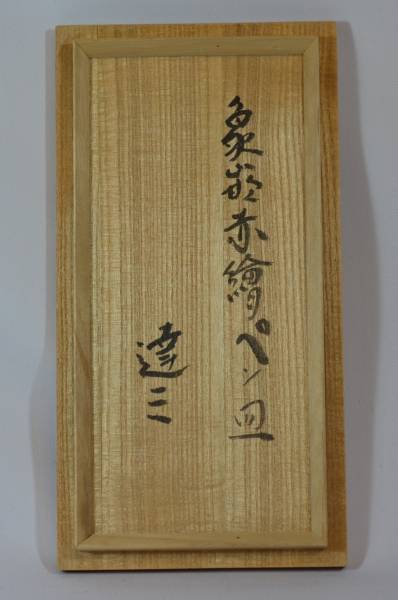 象嵌赤繪ペン皿
達三